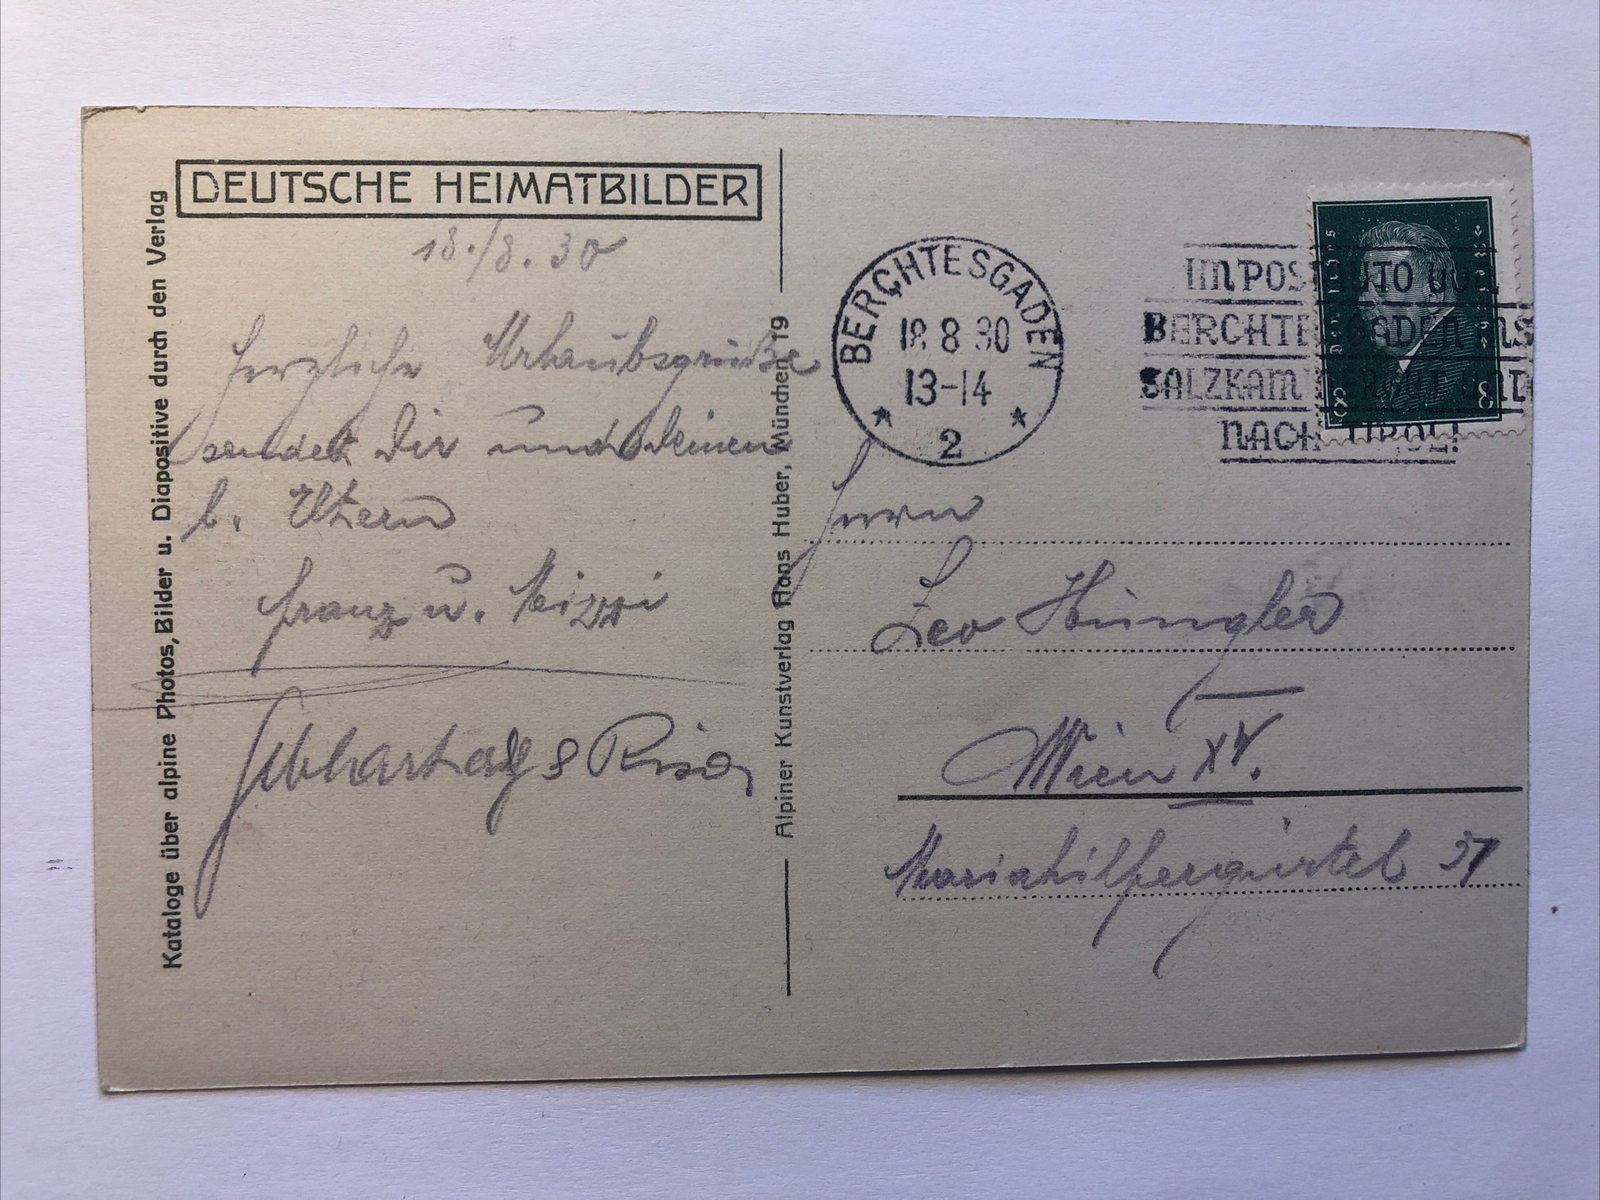 DEUTSCHE HEIMATBILDER
18./8. 30
Herzliche Urlaubsgrüße
sendet Dir und Deinen
l. Eltern
Franz u. Mizzi
Kataloge über alpine Photos, Bilder u. Diapositive durch den Verlag
Alpiner Kunstverlag Hans Huber, München 19
BERCHTESGADEN
18 8 30
13-14
2
IM POSTAUTO VON
BERCHTESGADEN INS
SALZKAMMERGUT UND
NACH TIROL!
8 8
Herrn
Leo Hüngler
Wien XV.
Mariahilfergürtel 37